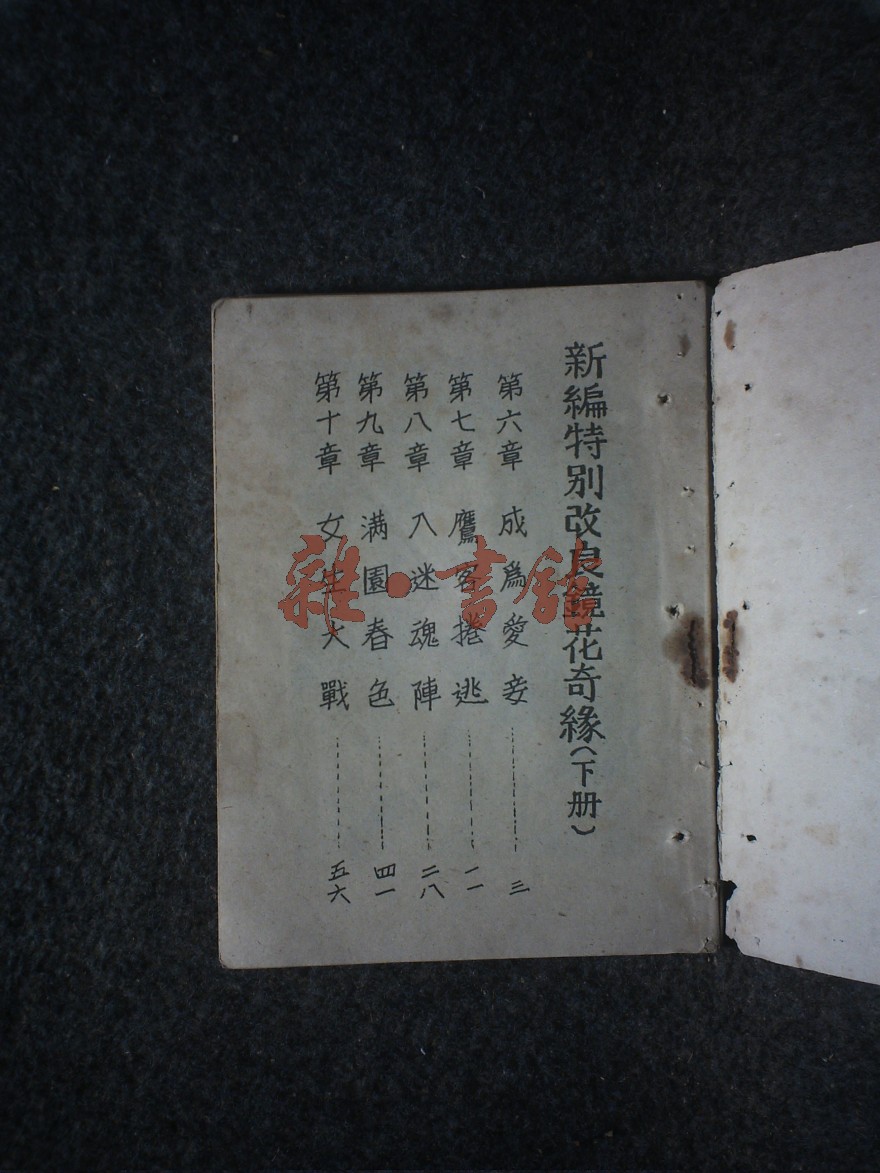 新編特别改良鏡花奇緣(下册)
第六章 成爲愛妾 三
第七章 鷹客捲逃 一一
第八章 入迷魂陣 二八
第九章 满園春色 四一
第十章 女生大戰 五六
雜·書館